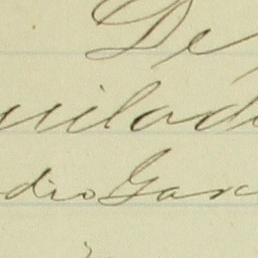 De
uilad
dro Gar